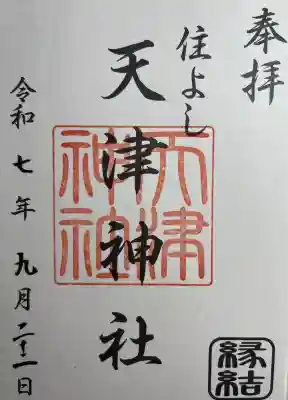 奉拝
住よし
天津神社
天津
神社
令和七年九月二十一日
縁結